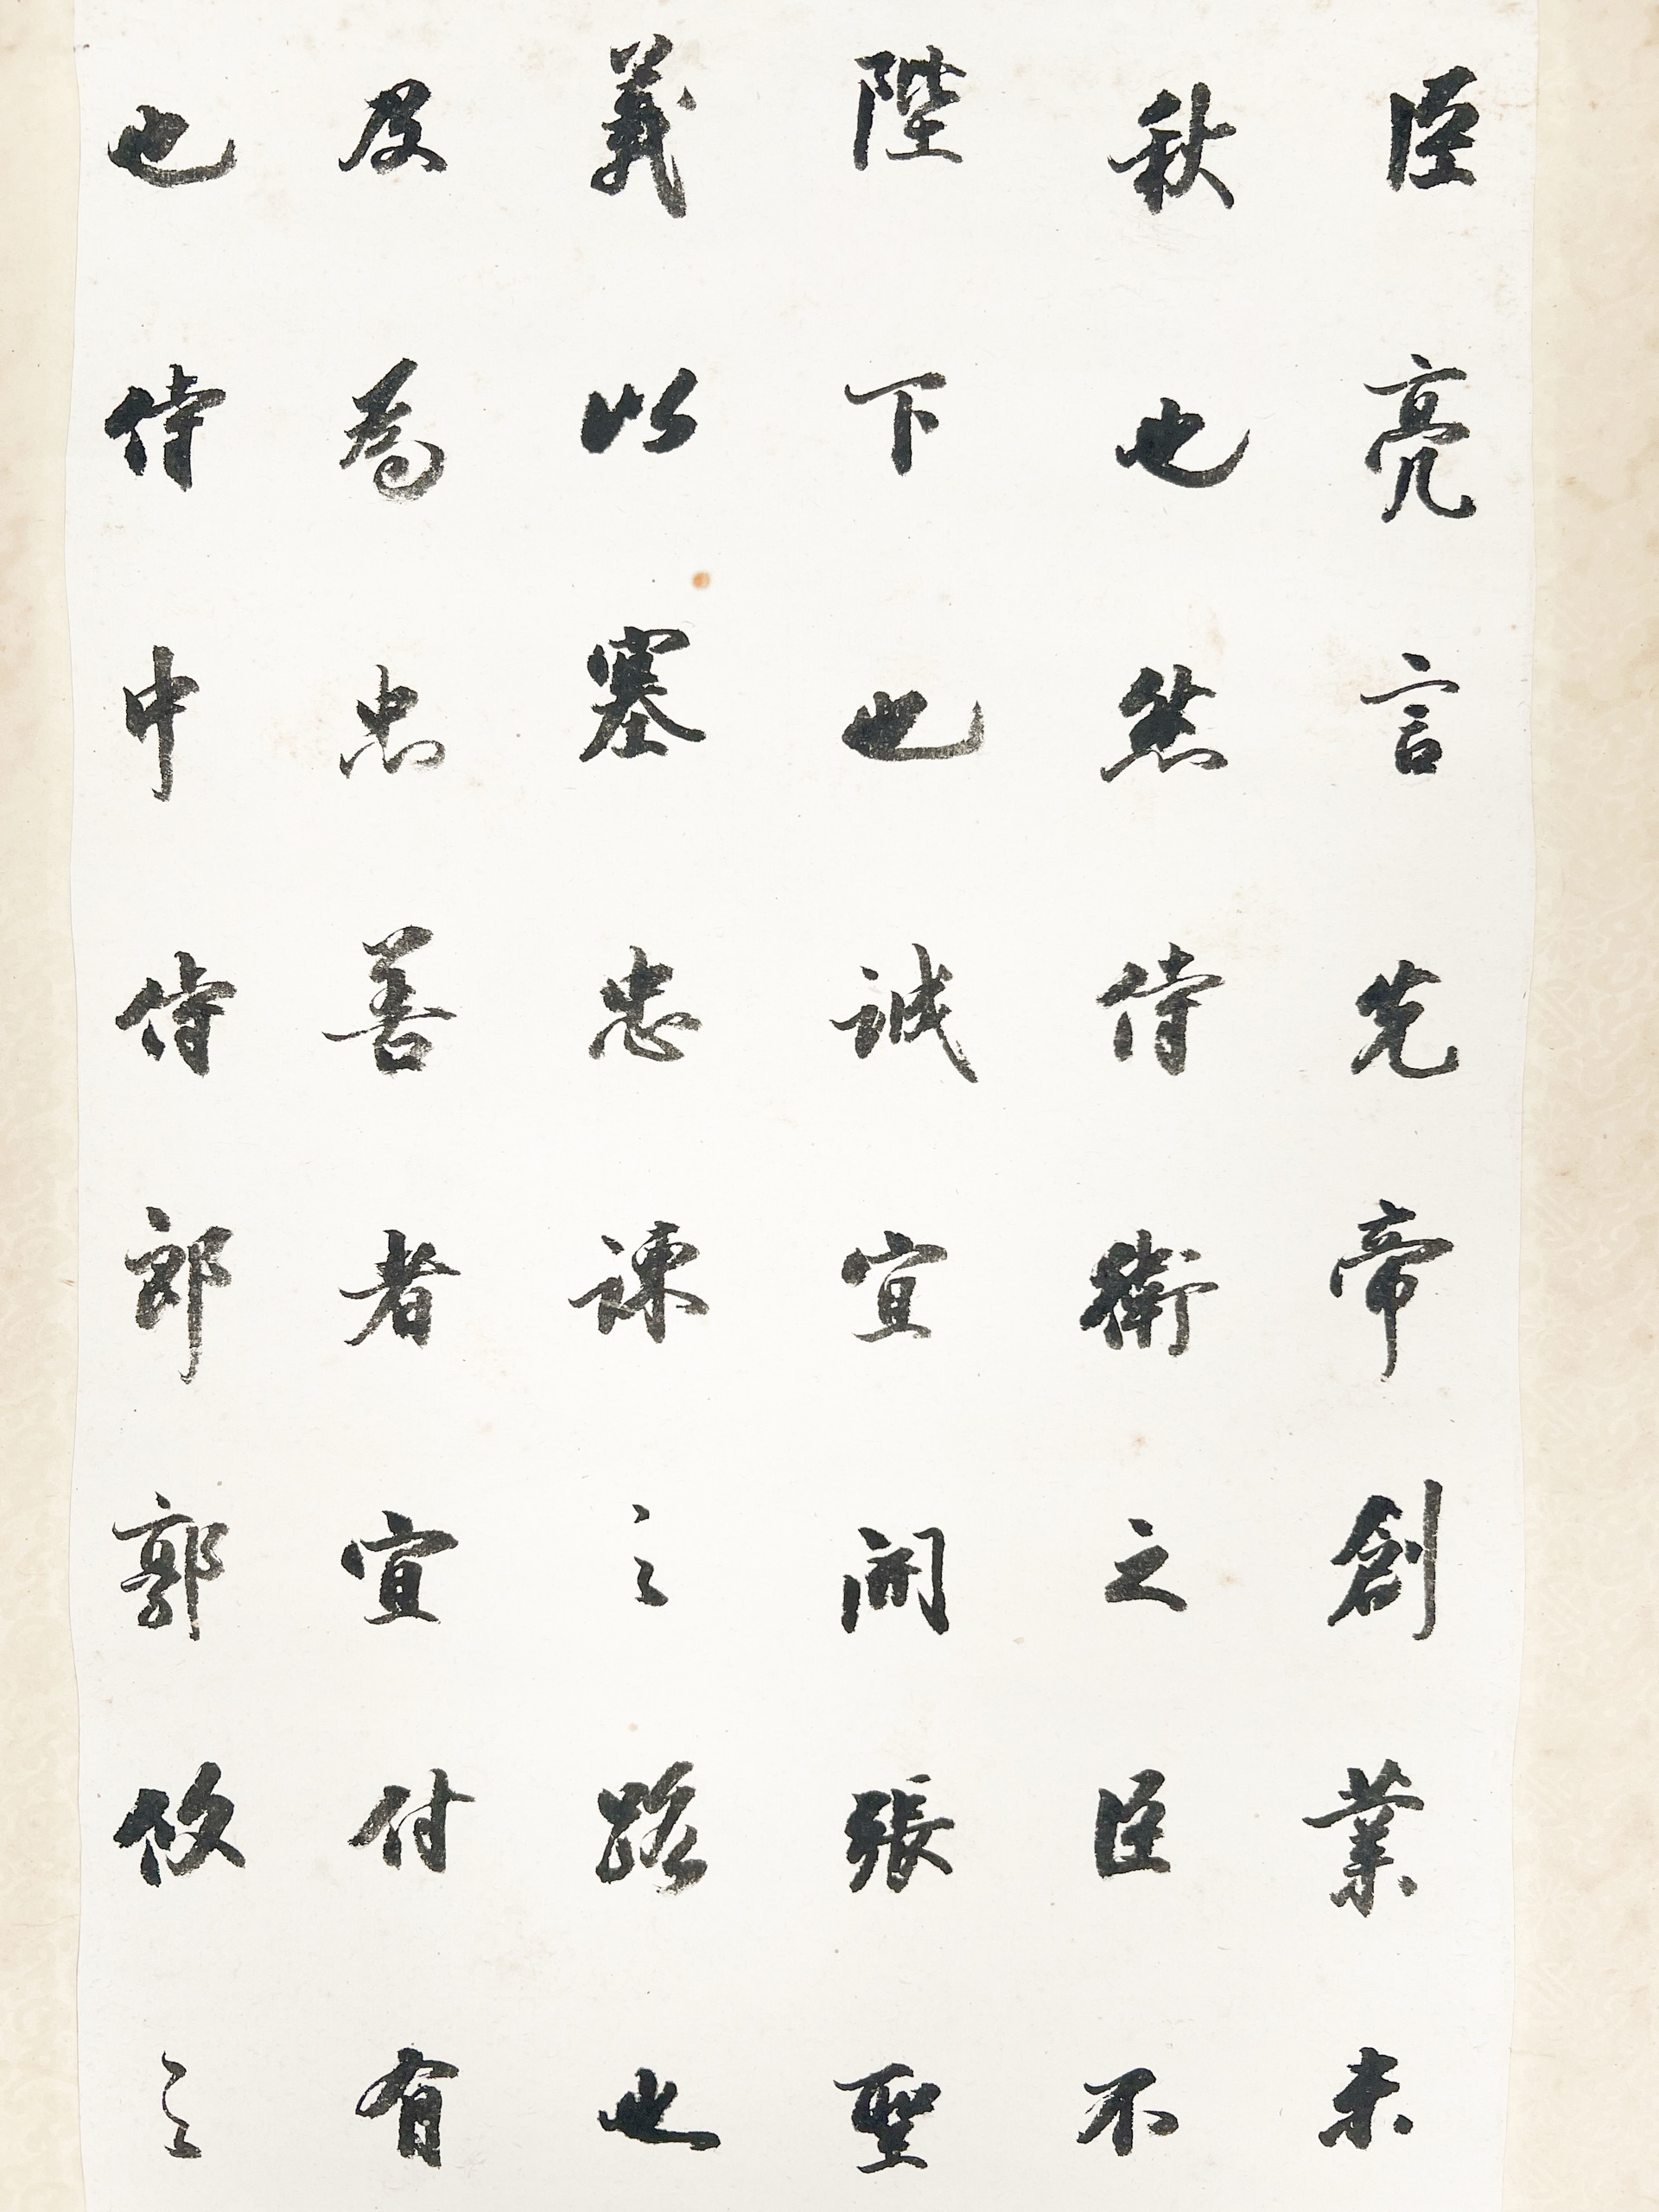 臣亮言先帝創業未
秋也然侍衛之臣不
陛下也誠宜開張聖
義以塞忠諫之路也
及為忠善者宜付有
也侍中侍郎郭攸之